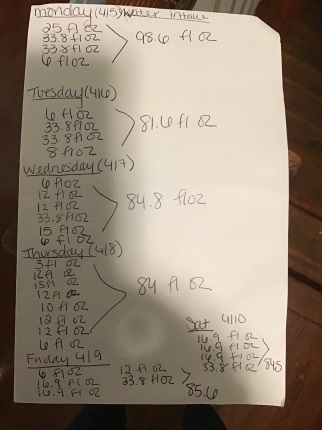 Monday (4|5) Water Intake
25 fl oz
33.8 fl oz
33.8 fl oz
6 fl oz
98.6 fl oz
Tuesday (4|6)
6 fl oz
33.8 fl oz
33.8 fl oz
8 fl oz
81.6 fl oz
Wednesday (4|7)
6 fl oz
12 fl oz
12 fl oz
33.8 fl oz
15 fl oz
6 fl oz
84.8 fl oz
Thursday (4|8)
3 fl oz
12 fl oz
15 fl oz
12 fl oz
10 fl oz
12 fl oz
12 fl oz
6 fl oz
84 fl oz
Friday 4|9
6 fl oz
16.9 fl oz
16.9 fl oz
12 fl oz
33.8 fl oz
85.6
Sat 4|10
16.9 fl oz
16.9 fl oz
16.9 fl oz
33.8 fl oz
84.5